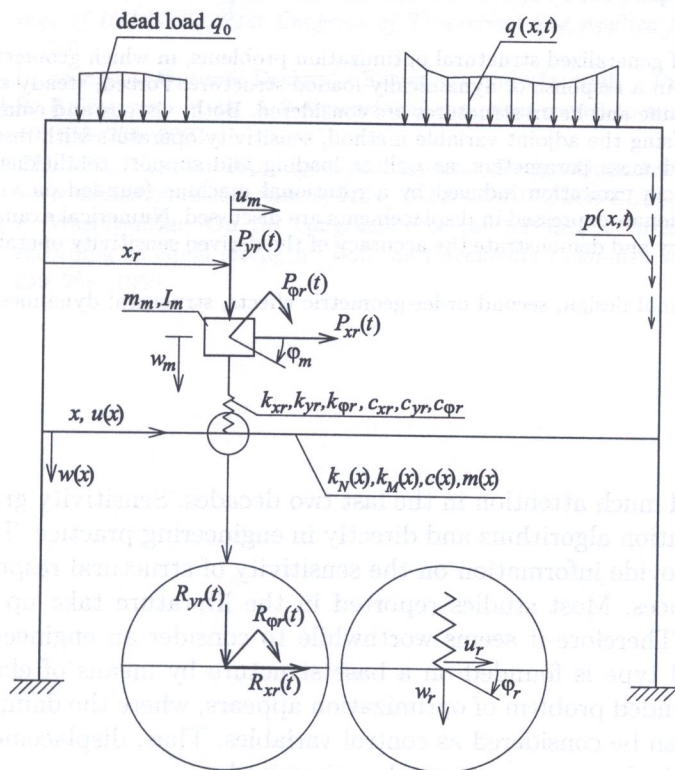 dead load q₀
q(x,t)
uₘ
P_yr(t)
p(x,t)
x_r
P_φr(t)
mₘ, Iₘ
P_xr(t)
wₘ
φₘ
k_xr, k_yr, k_φr, c_xr, c_yr, c_φr
x, u(x)
w(x)
k_N(x), k_M(x), c(x), m(x)
R_yr(t)
R_φr(t)
R_xr(t)
u_r
w_r
φ_r